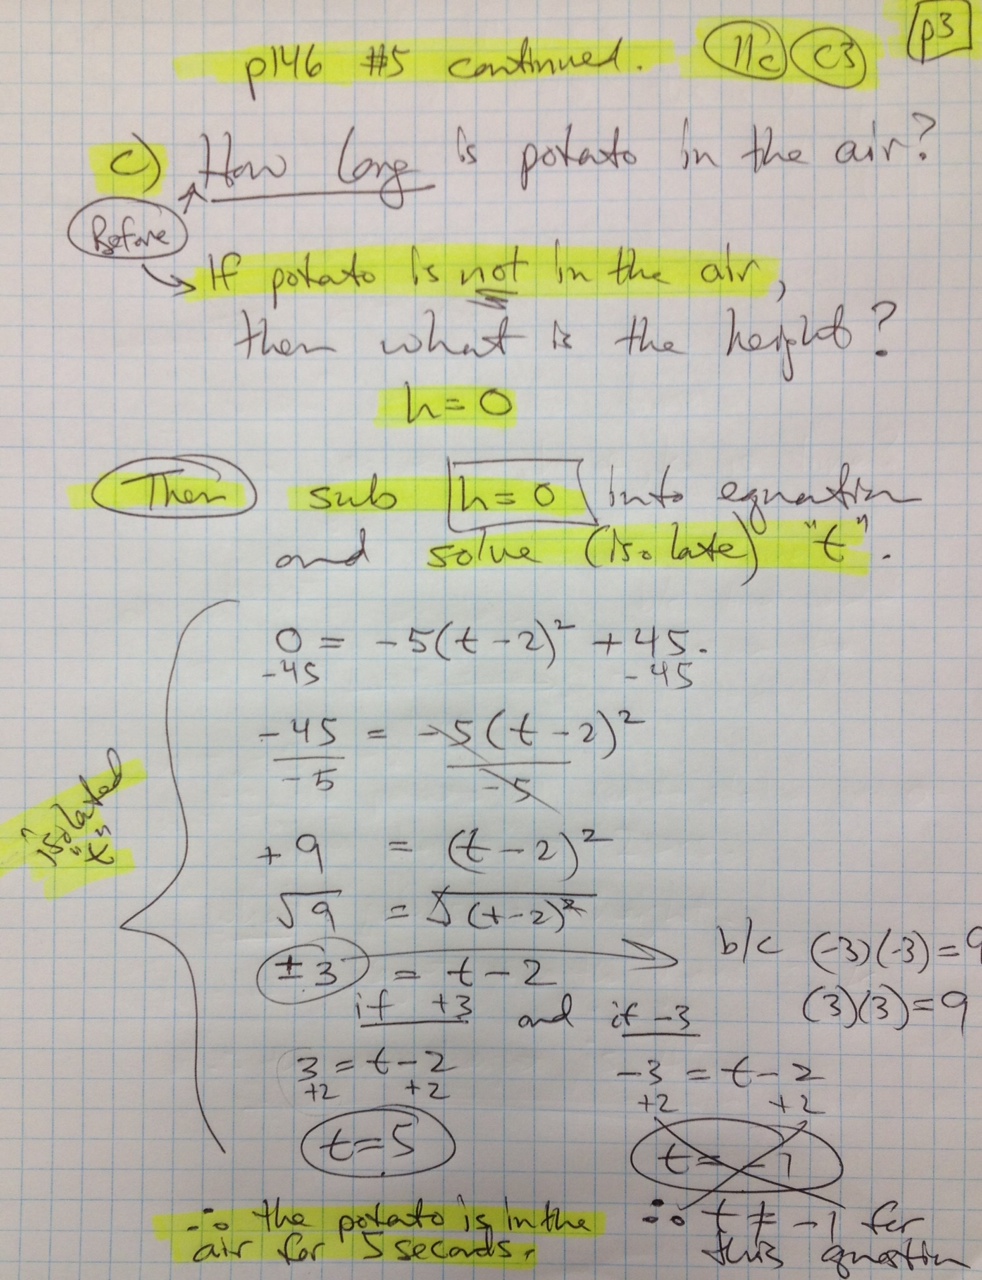 p3
p146 #5 continued. 11c C3
c) How long is potato in the air?
Before
If potato is not in the air,
then what is the height?
h=0
Then sub h=0 into equation
and solve (isolate) "t".
0 = -5(t-2)² +45.
-45 -45
-45 = -5(t-2)²
-5 -5
isolated
"t"
+9 = (t-2)²
√9 = √(t-2)²
±3 = t-2
b/c (-3)(-3)=9
(3)(3)=9
if +3 and if -3
3 = t-2
+2 +2
t=5
-3 = t-2
+2 +2
t= -1
∴ the potato is in the
air for 5 seconds.
∴ t ≠ -1 for
this question